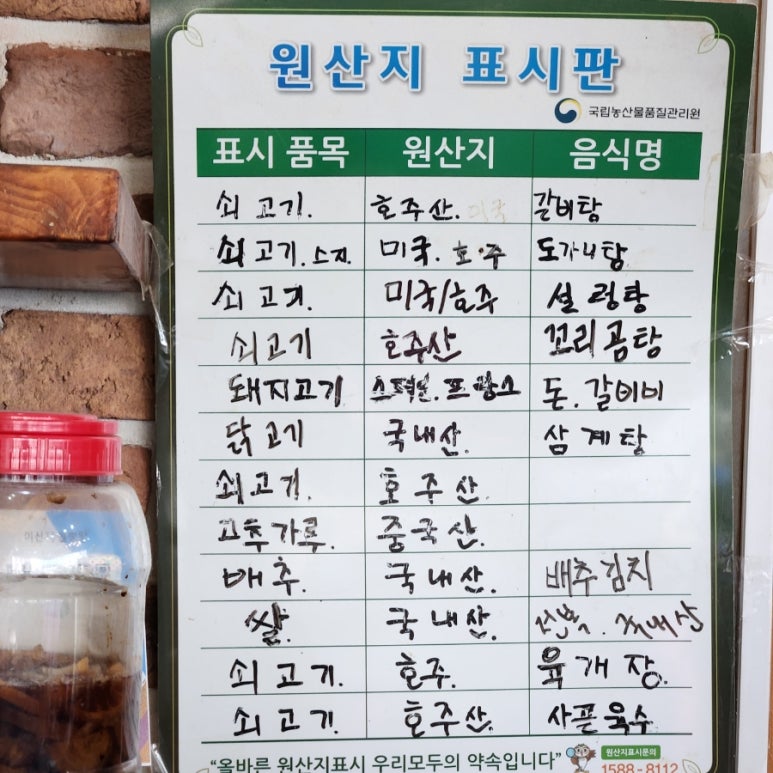 원산지 표시판
국립농산물품질관리원
표시 품목 원산지 음식명
쇠고기. 호주산. 미국 갈비탕
쇠고기.스지. 미국. 호.주 도가니탕
쇠고기. 미국/호주 설렁탕
쇠고기 호주산 꼬리곰탕
돼지고기 스페인. 프랑스 돈.갈비
닭고기 국내산. 삼계탕
쇠고기. 호주산.
고추가루. 중국산.
배추. 국내산. 배추김치
쌀. 국내산. 전복. 국내산
쇠고기. 호주. 육개장.
쇠고기. 호주산. 사골육수
"올바른 원산지표시 우리모두의 약속입니다"
원산지표시문의
1588-8112